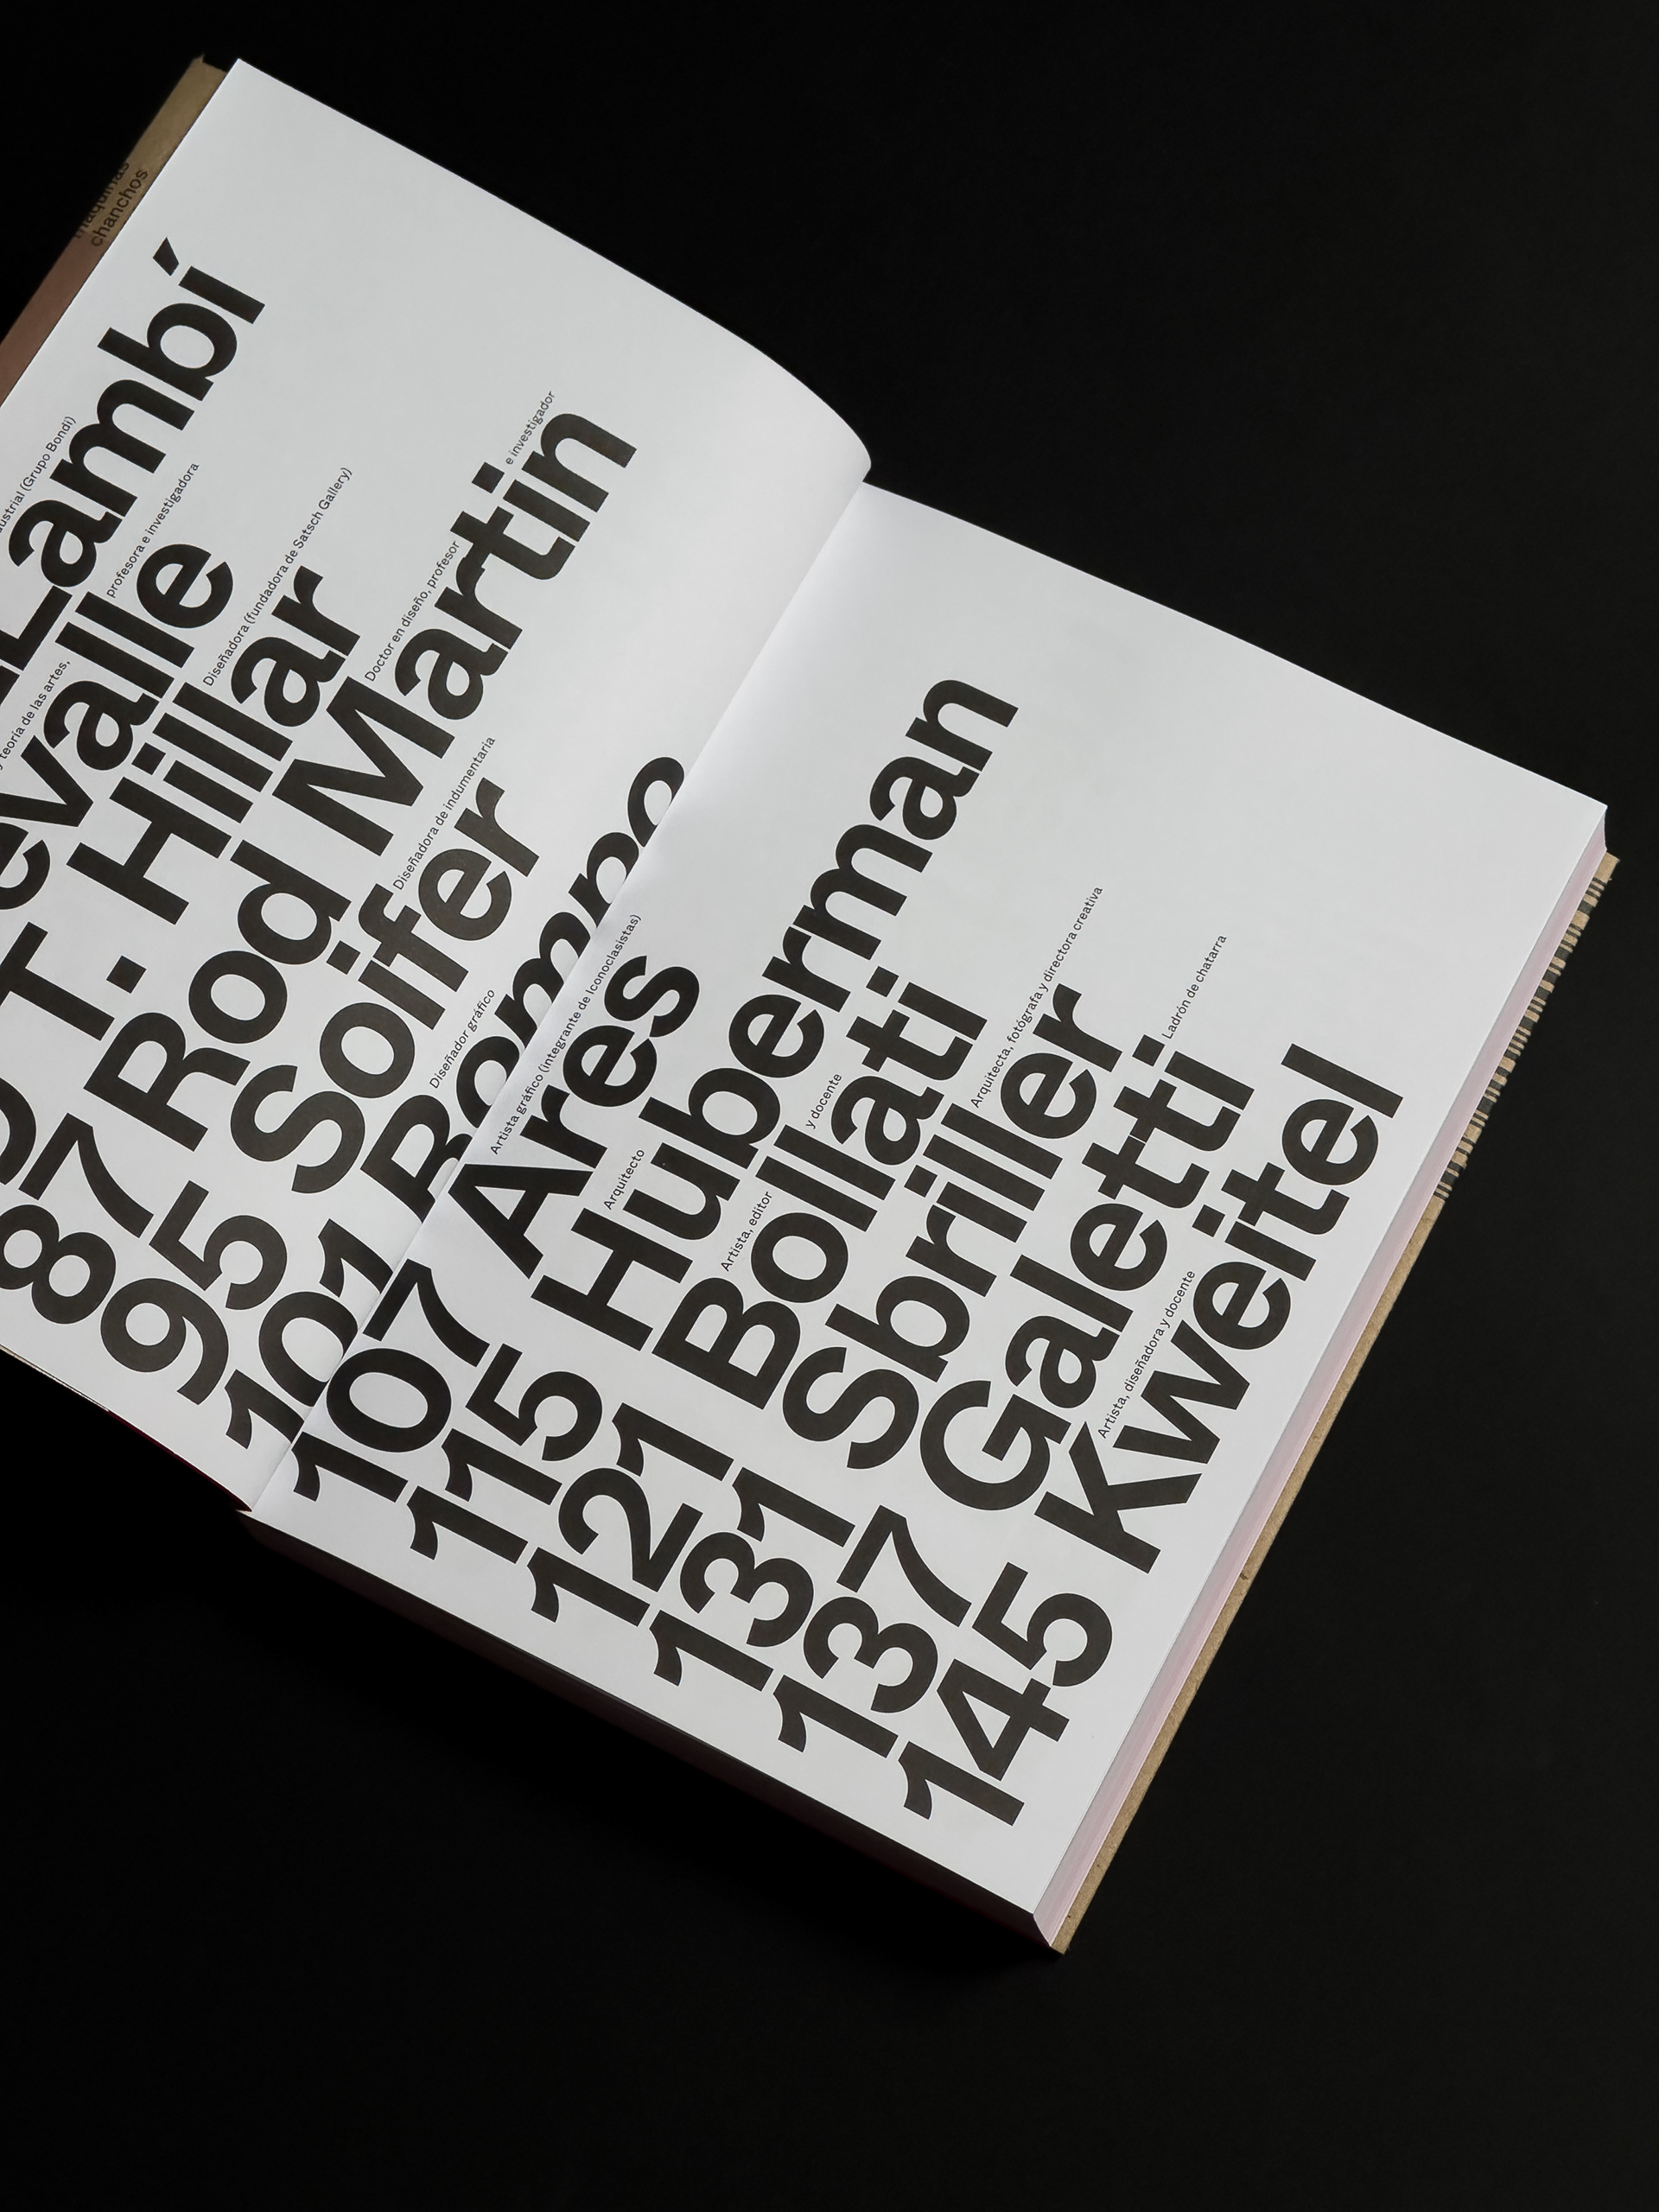 chanchos
(Grupo Bondi)
Lambí
y teoría de las artes, profesora e investigadora
Diseñadora (fundadora de Satsch Gallery)
T. Hillar
Doctor en diseño, profesor e investigador
87 Rod Martin
Diseñadora de indumentaria
95 Soifer
Diseñador gráfico
101
Artista gráfico (integrante de Iconoclasistas)
107 Ares
Arquitecto
115 Huberman
Artista, editor y docente
121 Bollati
Arquitecta, fotógrafa y directora creativa
131 Sbriller
Ladrón de chatarra
137 Galetti
Artista, diseñadora y docente
145 Kweitel